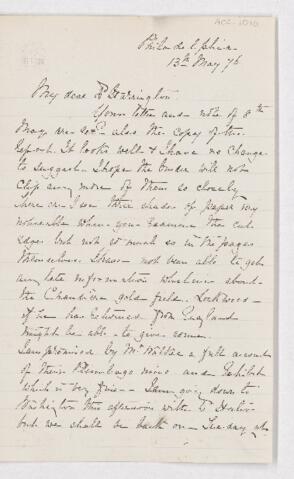 ACC-1010
Philadelphia
13th May 76
My dear Dr Harrington
Your letter and note of 8th
May recd. also the copy of the
report. It looks well & I have no change
to suggest. I hope the binder will not
clip any more of them so closely
here. I see three shades of paper very
noticeable when you examine the cut
edges but not so much in the pages
themselves. I have not been able to get
any late information whatever about
the Chaudière gold field. Lockwood
if he has returned from England
might be able to give some.
I am promised by Mr a full account
of their Plumbago mine and Exhibit
which is very fine — I am going down to
Washington this afternoon with
but we shall be back on Tuesday